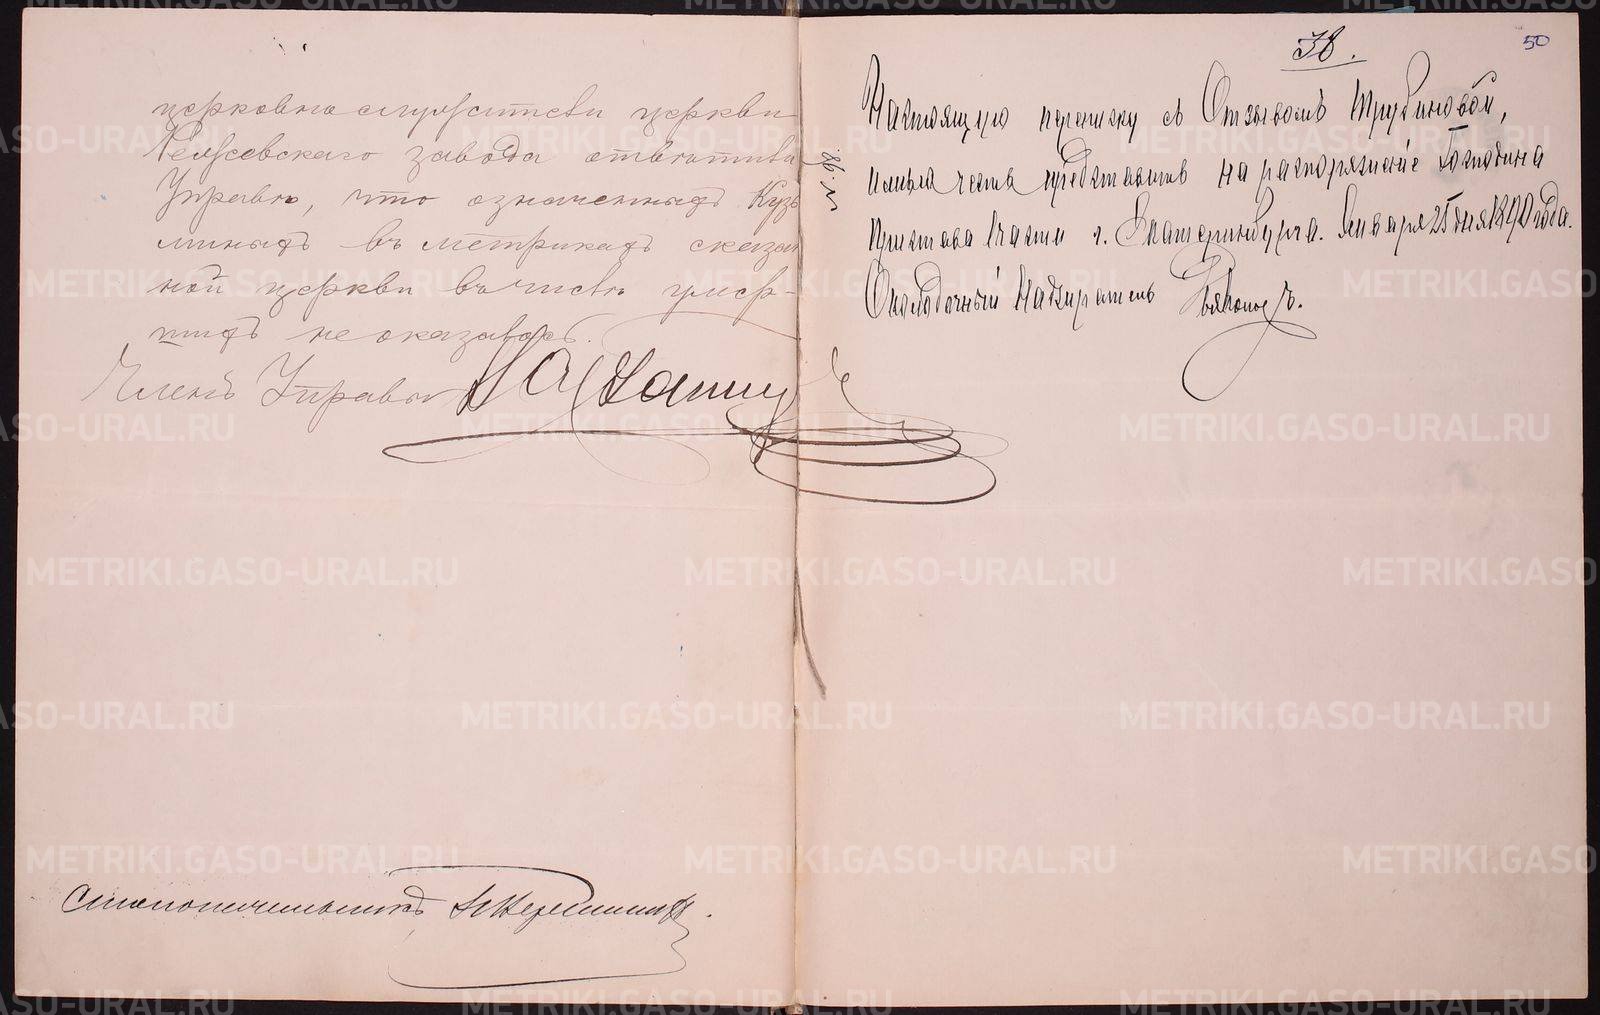 церковнослужители церкви
завода отвѣтили
Управѣ, что означенныхъ Кузь
миныхъ въ метрикахъ сказан
ной церкви въ числѣ умер-
шихъ не оказалось.
Членъ Управы
Столоначальникъ
38.
50
Настоящую переписку съ Отзывомъ Трубиновой,
имѣю честь представить на распоряженіе Господина
Пристава 1 части г. Екатеринбурга. Января 25 дня 1890 года.
Околодочный Надзиратель
METRIKI.GASO-URAL.RU